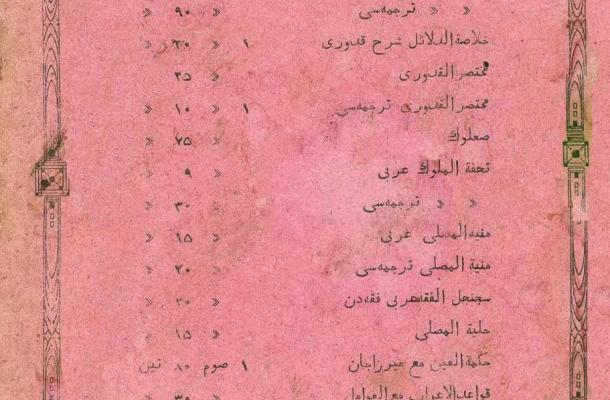 « « ترجمه‌سی « ۹۰ «
خلاصة الدلائل شرح قدوری ۱ « ۲۰ «
مختصر القدوری « ۲۵ «
مختصر القدوری ترجمه‌سی ۱ « ۱۰ «
صعلوك « ۷۵ «
تحفة الملوك عربی « ۹ «
« « ترجمه‌سی « ۳۰ «
منیه المصلی عربی « ۱۵ «
منیة المصلی ترجمه‌سی « ۲۰ «
سجنجل الفقه عربی فقه‌دن « ۲۰ «
حلیة المصلی « ۱۵ «
حکمة العین مع میرزاجان ۱ صوم ۸۰ تین
قواعد الاعراب مع العوامل « ۳۰ «